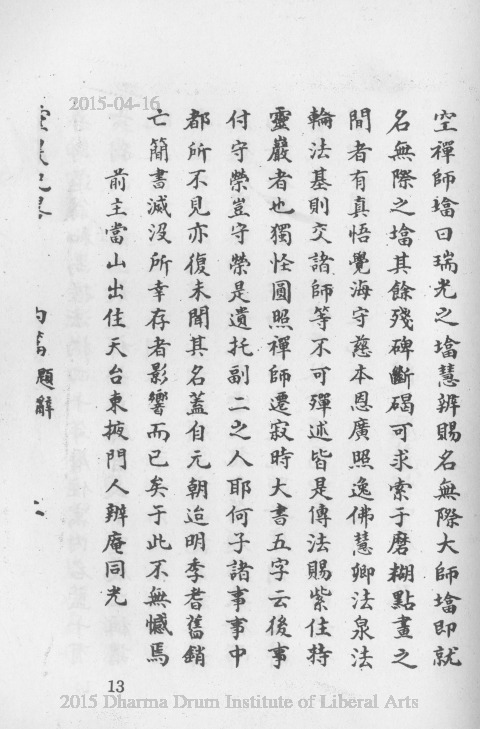 2015-04-16
空禪師墖曰瑞光之墖慧辨賜名無際大師墖即就
名無際之墖其餘殘碑斷碣可求索于磨糊點畫之
間者有真悟覺海守慈本恩廣照逸佛慧卿法泉法
輪法基則交諸師等不可殫述皆是傳法賜紫住持
靈巖者也獨怪圓照禪師遷寂時大書五字云後事
付守榮豈守榮是遺托副二之人耶何子諸事事中
都所不見亦復未聞其名蓋自元朝迨明季耆舊銷
亡簡書滅沒所幸存者影響而已矣于此不無憾焉
前主當山出住天台東掖門人辨庵同光
題辭
13
2015 Dharma Drum Institute of Liberal Arts